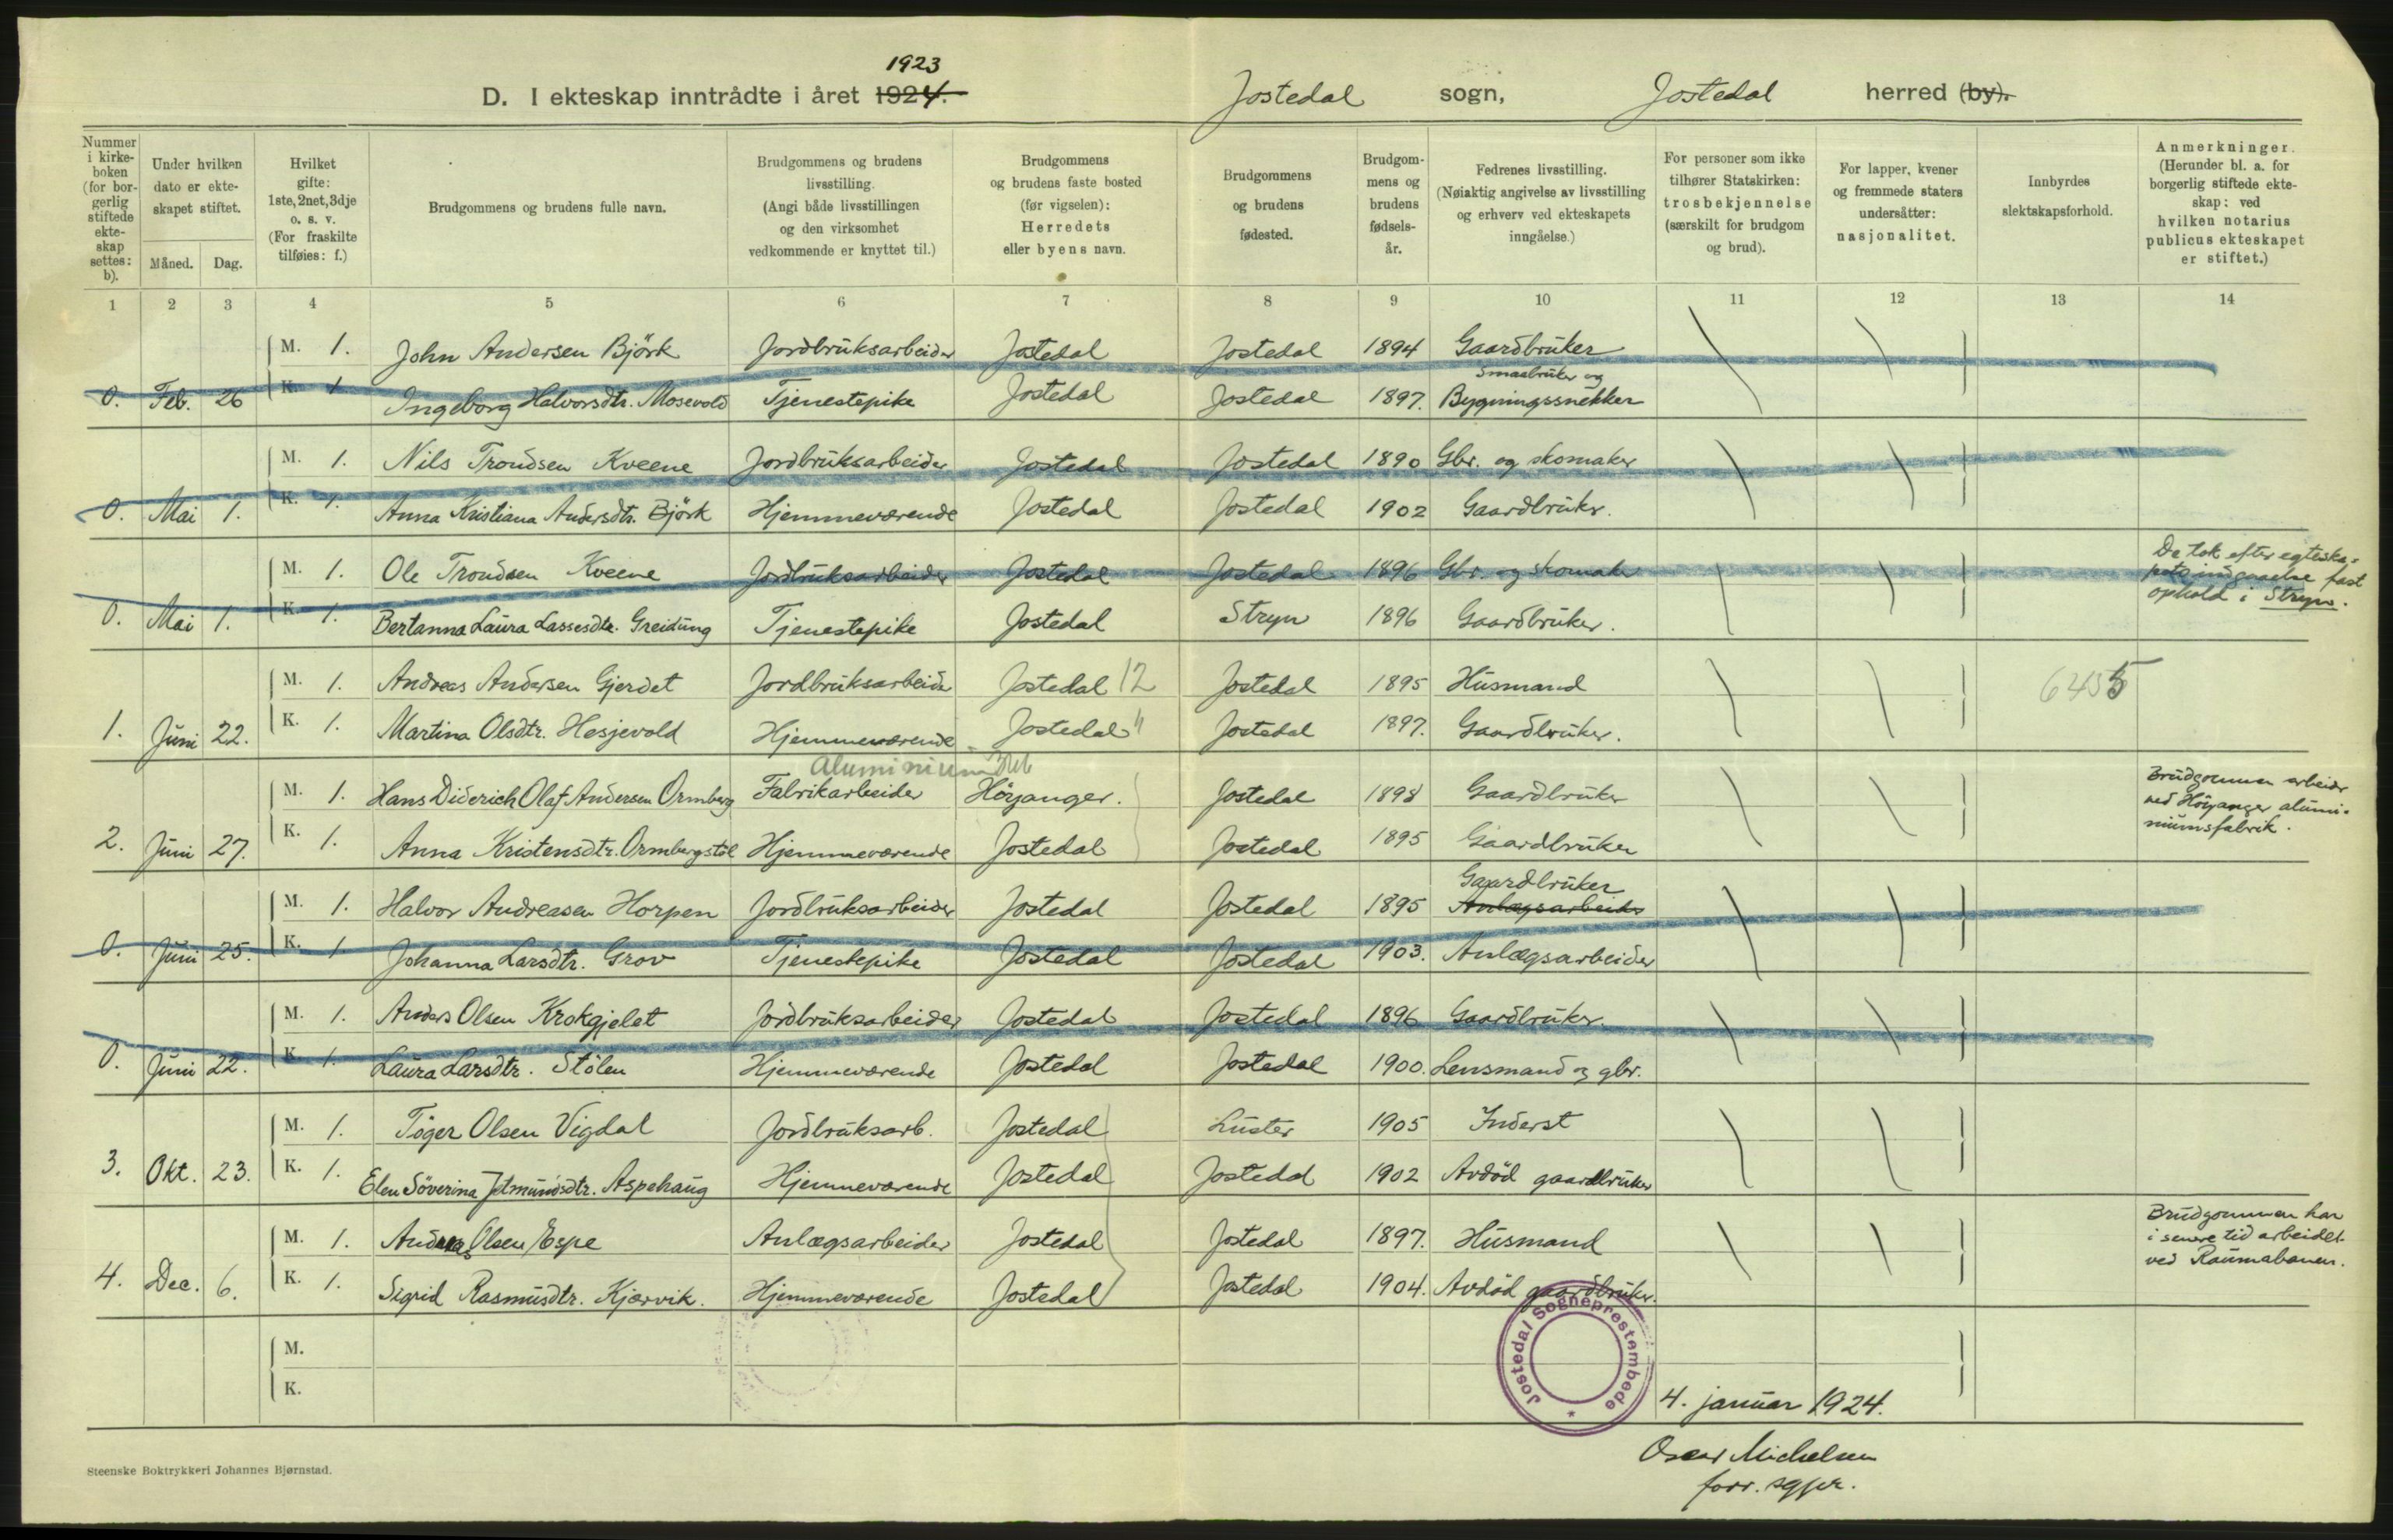 1923
D. I ekteskap inntrådte i året 1924. Jostedal sogn, Jostedal herred (by).
Nummer i kirke- boken (for bor- gerlig stiftede ekte- skap settes: b).
Under hvilken dato er ekte- skapet stiftet.
Måned. Dag.
Hvilket gifte: 1ste, 2net, 3dje o. s. v. (For fraskilte tilføies: f.)
Brudgommens og brudens fulle navn.
Brudgommens og brudens livsstilling. (Angi både livsstillingen og den virksomhet vedkommende er knyttet til.)
Brudgommens og brudens faste bosted (før vigselen): Herredets eller byens navn.
Brudgommens og brudens fødested.
Brudgom- mens og brudens fødsels- år.
Fedrenes livsstilling. (Nøiaktig angivelse av livsstilling og erhverv ved ekteskapets inngåelse.)
For personer som ikke tilhører Statskirken: trosbekjennelse (særskilt for brudgom og brud).
For lapper, kvener og fremmede staters undersåtter: nasjonalitet.
Innbyrdes slektskapsforhold.
Anmerkninger. (Herunder bl. a. for borgerlig stiftede ekte- skap: ved hvilken notarius publicus ekteskapet er stiftet.)
1 2 3 4 5 6 7 8 9 10 11 12 13 14
M. 1. John Andersen Björk Jordbruksarbeider Jostedal Jostedal 1894 Gaardbruker
Smaabruker og
0. Feb. 26 K. 1 Ingeborg Halvorsdtr. Mosevold Tjenestepike Jostedal Jostedal 1897. Bygningssnekker
M. 1. Nils Trondsen Kveene Jordbruksarbeider Jostedal Jostedal 1890 Gbr. og skomaker
0. Mai 1. K. 1. Anna Kristiana Andersdtr. Björk Hjemmeværende Jostedal Jostedal 1902 Gaardbruker.
M. 1. Ole Trondsen Kveene Jordbruksarbeider Jostedal Jostedal 1896 Gbr. og skomaker
De tok efter egteska-
pets indgaaelse fast
ophold i Stryn.
0. Mai 1. K. 1. Bertanna Laura Lassesdtr. Greidung Tjenestepike Jostedal Stryn 1896 Gaardbruker.
M. 1. Andreas Andersen Gjerdet Jordbruksarbeider Jostedal 12 Jostedal 1895 Husmand 6455
1. Juni 22. K. 1. Martina Olsdtr. Hesjevold Hjemmeværende Jostedal " Jostedal 1897. Gaardbruker.
Aluminium
M. 1. Hans Diderich Olaf Andersen Ormberg Fabrikarbeider Höyanger. Jostedal 1898 Gaardbruker
Brudgommen arbeider
ved Höyanger alumi-
niumsfabrik.
2. Juni 27. K. 1. Anna Kristensdtr. Ormbergstöl Hjemmeværende Jostedal Jostedal 1895 Gaardbruker
Gaardbruker
M. 1. Halvor Andreasen Horpen Jordbruksarbeider Jostedal Jostedal 1895 Anlægsarbeider
0. Juni 25. K. 1 Johanna Larsdtr. Grov Tjenestepike Jostedal Jostedal 1903. Anlægsarbeider
M. 1. Anders Olsen Krokgjelet Jordbruksarbeider Jostedal Jostedal 1896 Gaardbruker.
0. Juni 22. K. 1. Laura Larsdtr. Stölen Hjemmeværende Jostedal Jostedal 1900. Lensmand og gbr.
M. 1. Töger Olsen Vigdal Jordbruksarb. Jostedal Luster 1905 Inderst
3. Okt. 23. K. 1. Elen Söverina Jetmundsdtr. Aspehaug Hjemmeværende Jostedal Jostedal 1902 Avdöd gaardbruker
M. 1. Andreas Olsen Espe Anlægsarbeider Jostedal Jostedal 1897. Husmand
Brudgommen har
i senere tid arbeidet
ved Raumabanen.
4. Dec. 6. K. 1. Sigrid Rasmusdtr. Kjærvik. Hjemmeværende Jostedal Jostedal 1904. Avdöd gaardbruker.
M.
K.
Jostedal Sogneprestembede *
4. januar 1924.
Oscar Michelsen
forr. sgpr.
Steenske Boktrykkeri Johannes Bjørnstad.